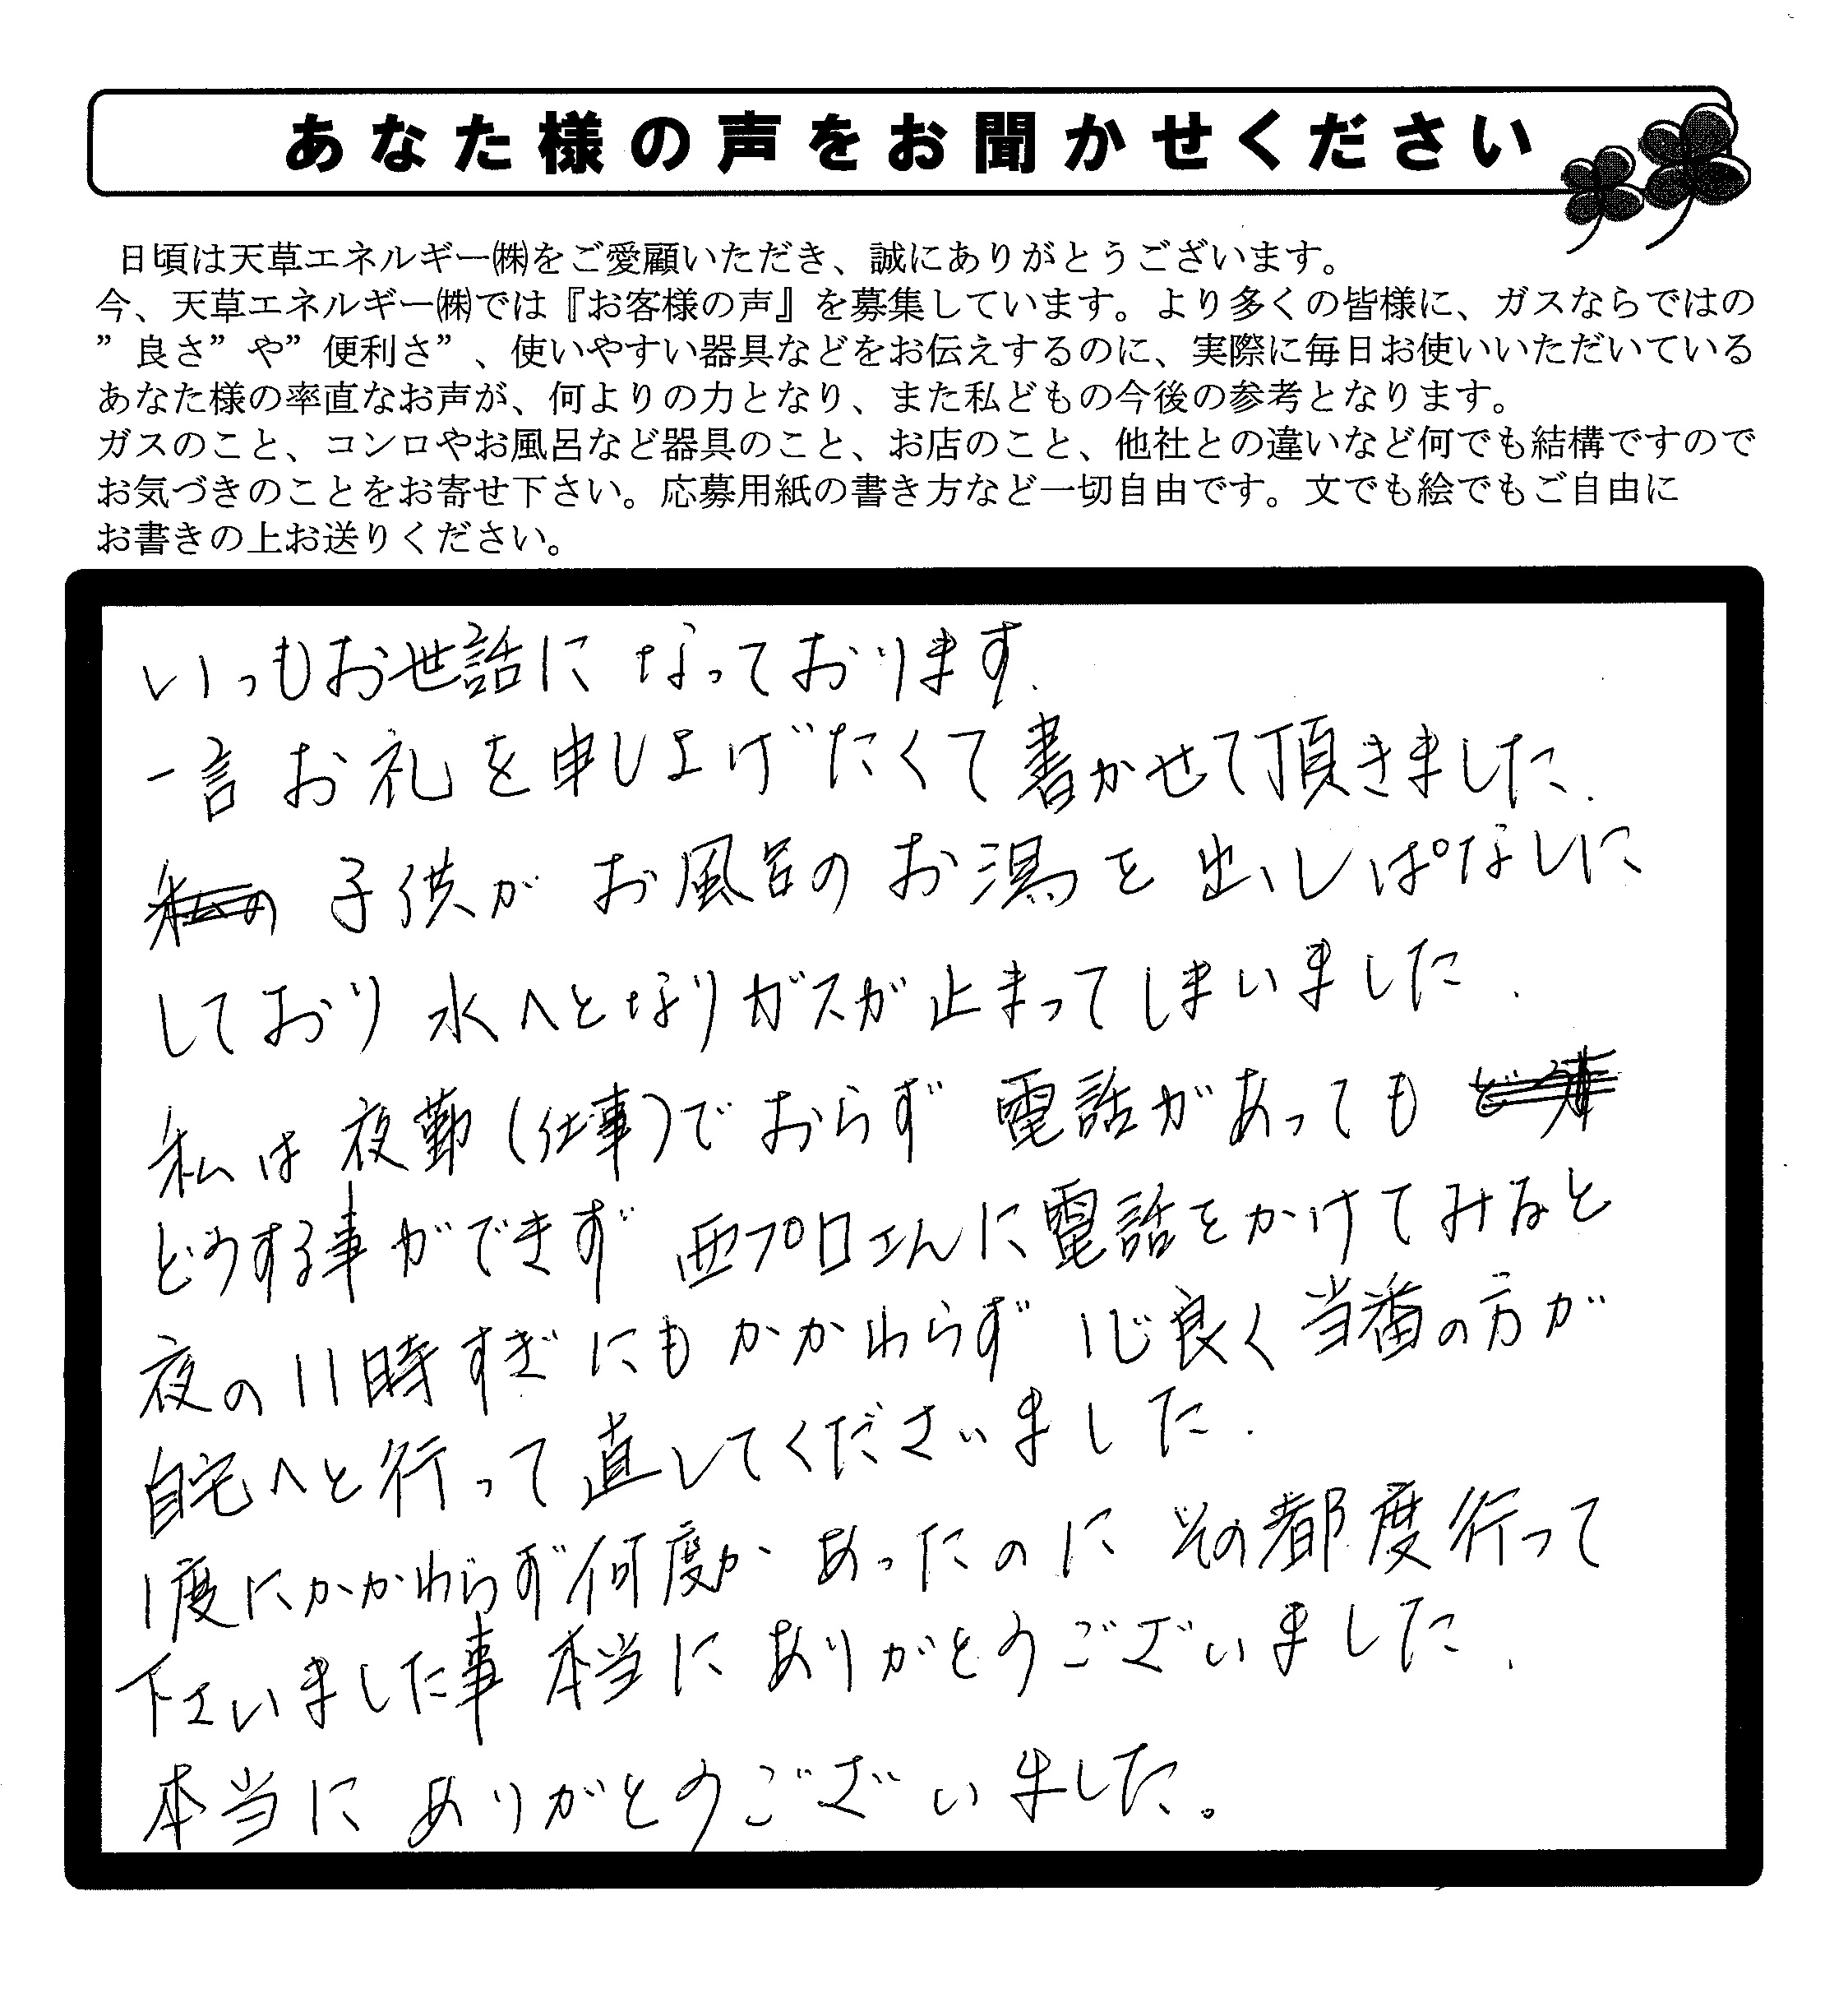 あなた様の声をお聞かせください
日頃は天草エネルギー㈱をご愛顧いただき、誠にありがとうございます。
今、天草エネルギー㈱では『お客様の声』を募集しています。より多くの皆様に、ガスならではの
”良さ”や”便利さ”、使いやすい器具などをお伝えするのに、実際に毎日お使いいただいている
あなた様の率直なお声が、何よりの力となり、また私どもの今後の参考となります。
ガスのこと、コンロやお風呂など器具のこと、お店のこと、他社との違いなど何でも結構ですので
お気づきのことをお寄せ下さい。応募用紙の書き方など一切自由です。文でも絵でもご自由に
お書きの上お送りください。
いつもお世話になっております.
一言お礼を申し上げたくて書かせて頂きました.
子供がお風呂のお湯を出しぱなしに
しており水へとなりガスが止まってしまいました.
私は夜勤(仕事)でおらず電話があっても
どうする事ができず西プロさんに電話をかけてみると
夜の11時すぎにもかかわらず心良く当番の方が
自宅へと行って直してくださいました.
1度にかかわらず何度かあったのにその都度行って
下さいました事本当にありがとうございました.
本当にありがとうございました。